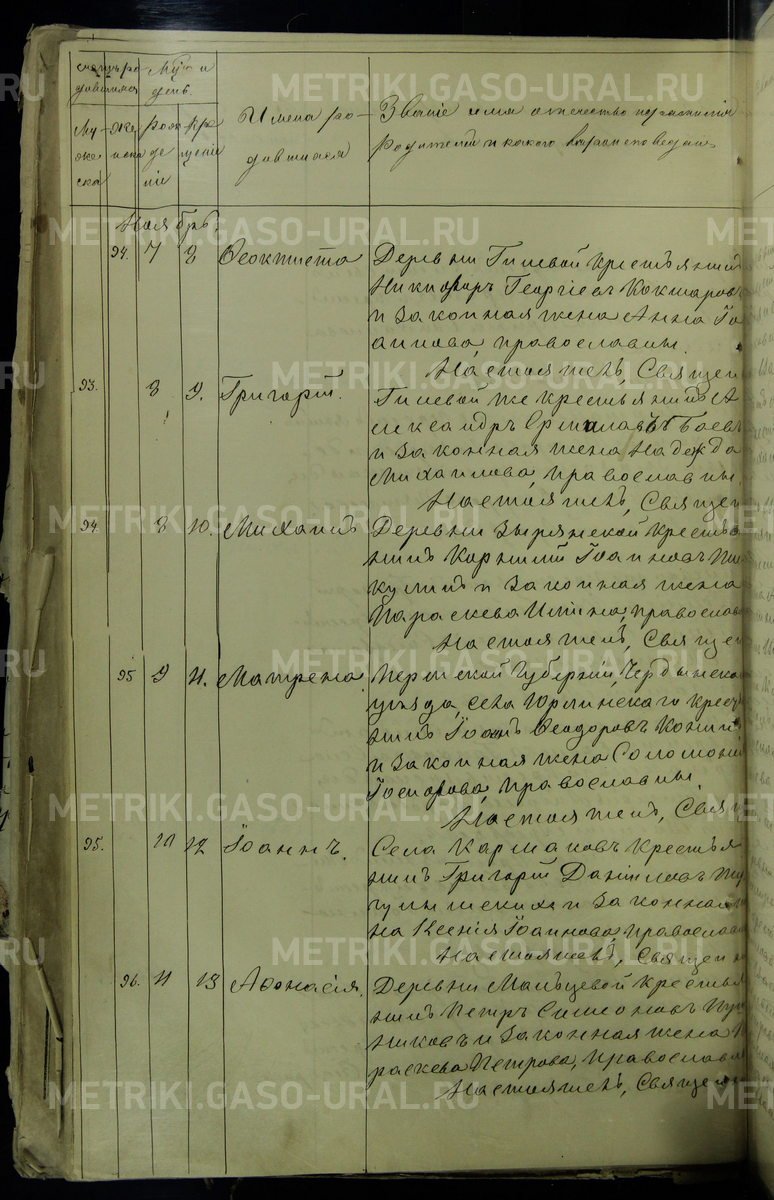 Счетъ ро- Мѣс. и
дившихся день.
Му- Же- Рож Кре Имена ро- Званіе имя отчество и фамилія
жеска нска де щенія дившихся родителей и какого вѣроисповеданія
ска нія
Ноябрь.
94. 7 8 Феоктиста Деревни Гилевой крестьянинъ
Никифоръ Георгіевъ Кокшаровъ
и законная жена Анна Іо
аннова, православны.
Настоятель, Священ
93. 8 9. Григорій. Гилевой же крестьянинъ А
лександръ Ермилавъ Баевъ
и законная жена Надежда
Михаилова, православны.
Настоятель, Священ
94 8 10. Михаилъ Деревни Зырянской кресть
янинъ Корнилій Іоанновъ Ни
кулинъ и законная жена
Параскева Ильина, православ
Настоятель, Священ
95 9 11. Матрена Пермской Губерніи, Чердынскаго
уезда, села Юрлинскаго крест
янинъ Іоанъ Феодоровъ Конин
и законная жена Соломони
Іосифова, православны.
Настоятель, Свящ
95. 10 12 Іоаннъ. Села Кармановъ крестья
нинъ Григорій Даніиловъ
и законная
на Ксенія Іоаннова, православ
Настоятель, Священ
96. 11 13 Афонасія. Деревни Мальцевой крестья
нинъ Петръ Симоновъ
никовъ и законная жена П
раскева Петрова, православн
Настоятель, Священ
METRIKI.GASO-URAL.RU